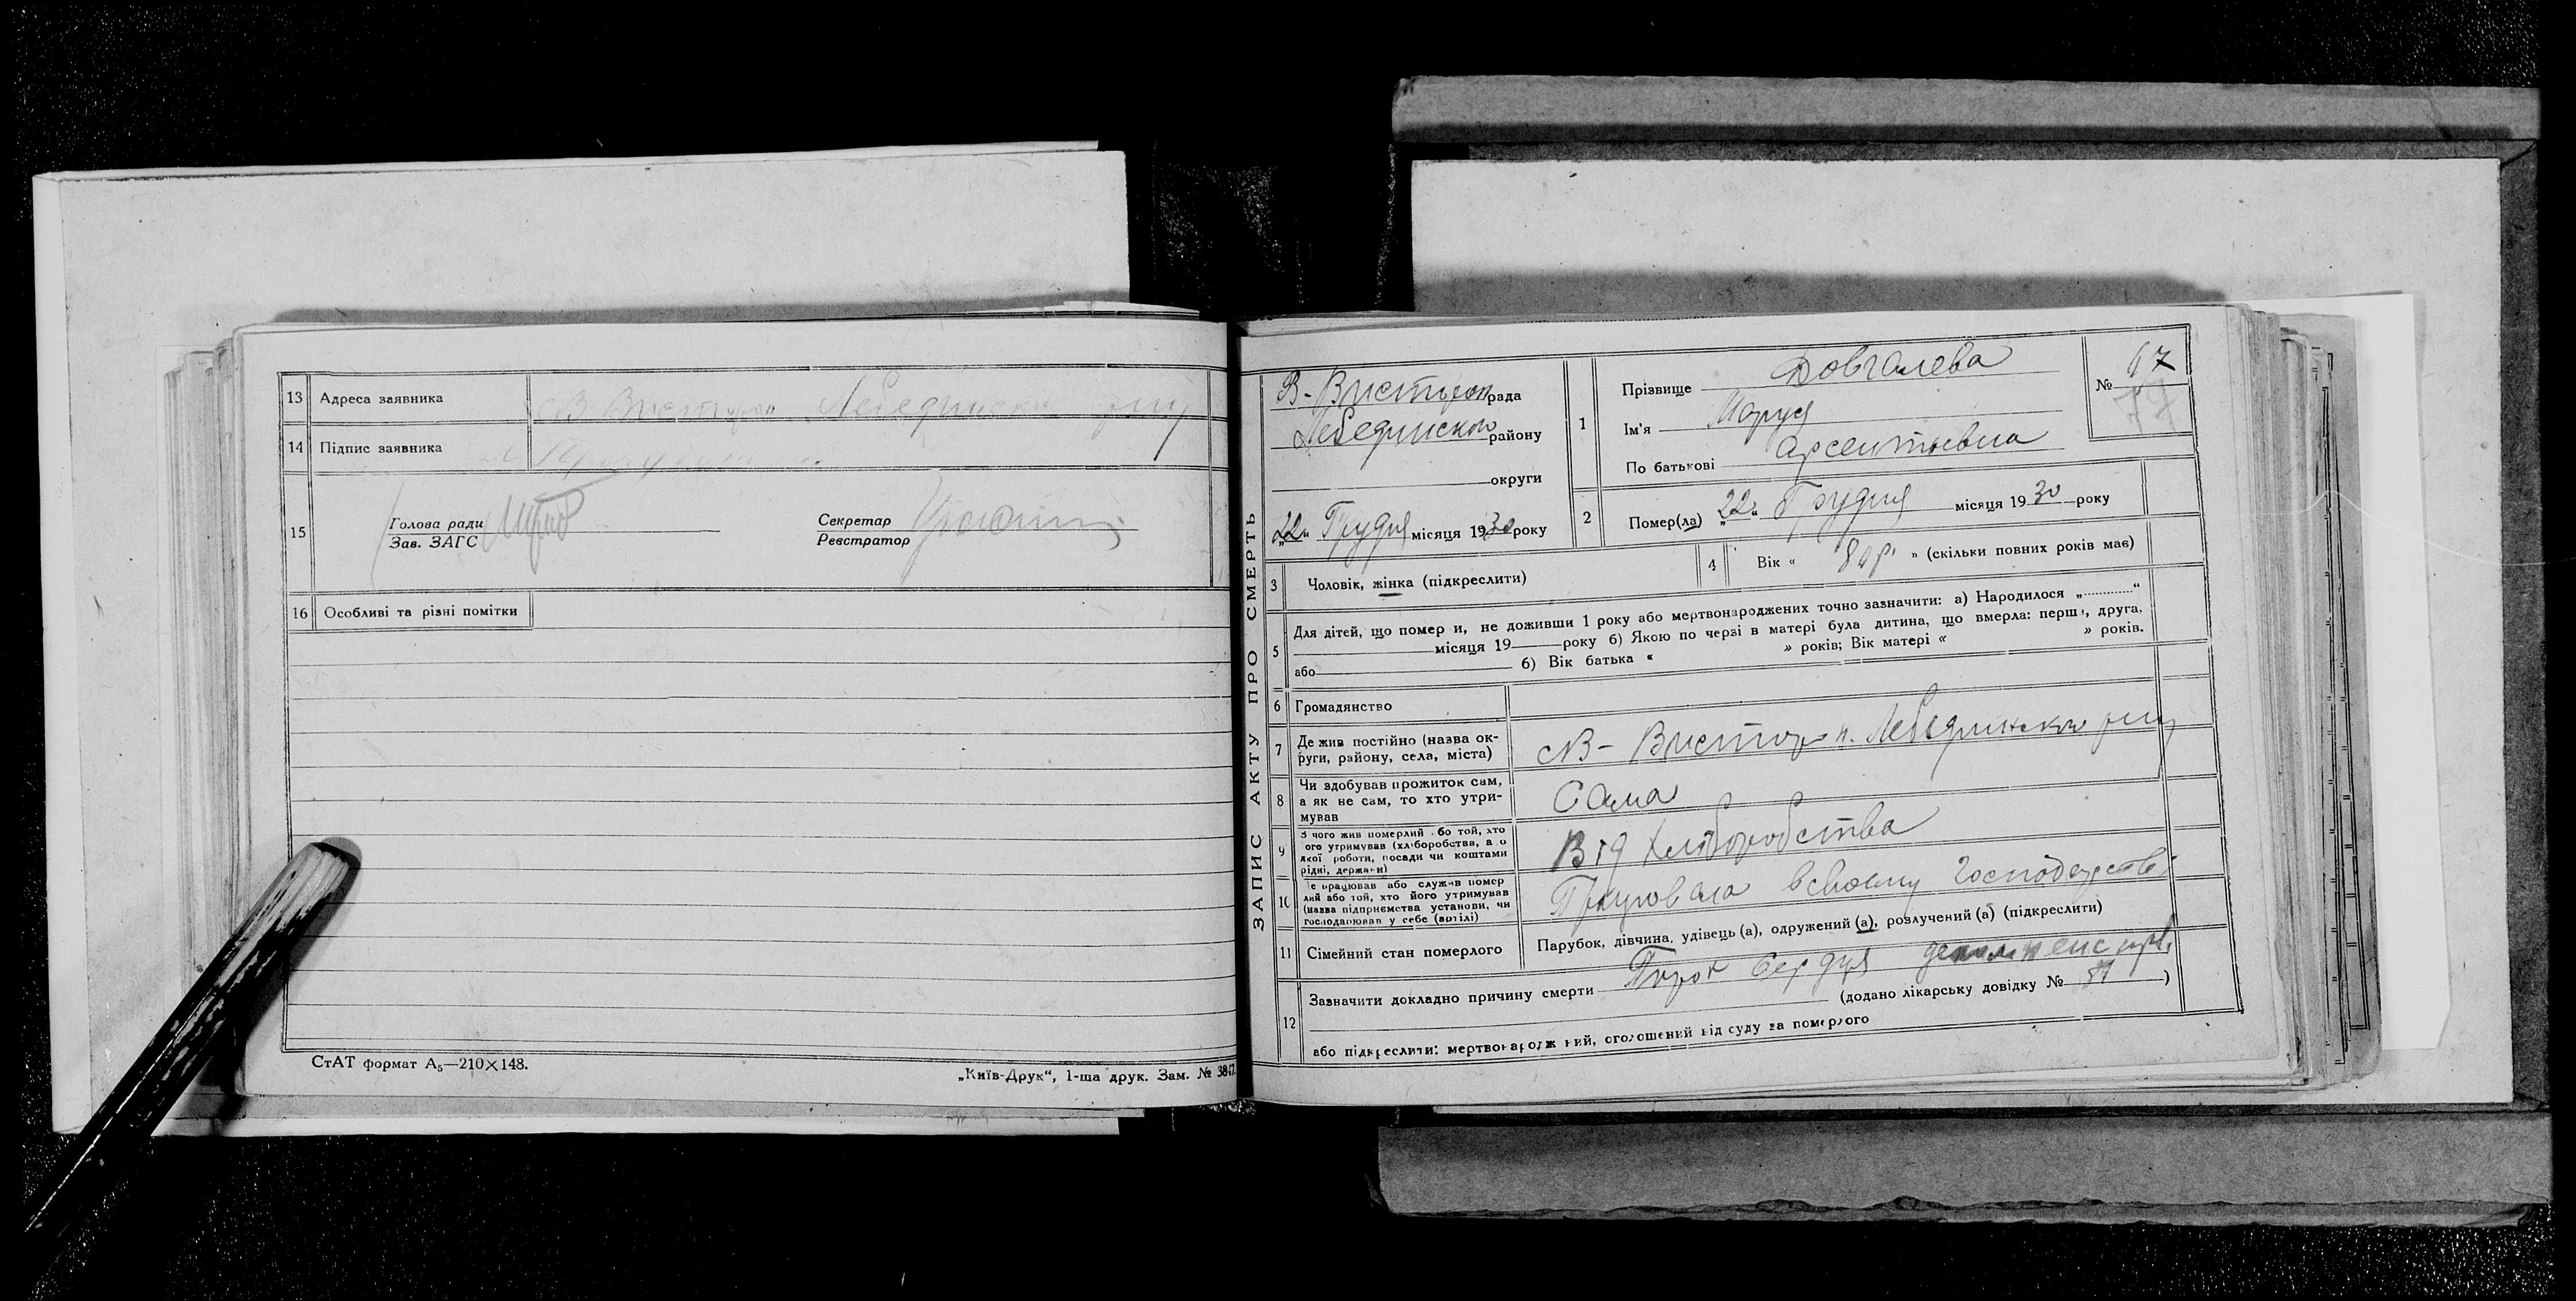 13 Адреса заявника
14 Підпис заявника
15 Голова ради
Зав. ЗАГС
Секретар
Реєстратор
16 Особливі та різні помітки
СтАТ формат А₅—210×148.
„Київ-Друк“, 1-ша друк. Зам. №
ЗАПИС АКТУ ПРО СМЕРТЬ
рада
Лебединского району
округи
„22“ Грудня місяця 1930 року
1 Прізвище Довгалева
Ім'я Маруся
По батькові Арсентьевна
№ 67
2 Помер(ла) „22“ Грудня місяця 1930 року
3 Чоловік, жінка (підкреслити)
4 Вік « » (скільки повних років має)
5 Для дітей, що помер и, не доживши 1 року або мертвонароджених точно зазначити: а) Народилося „ “
місяця 19 року б) Якою по черзі в матері була дитина, що вмерла: перш, друга,
або б) Вік батька « » років; Вік матері « » років.
6 Громадянство
7 Де жив постійно (назва ок-
руги, району, села, міста)
Лебединского
8 Чи здобував прожиток сам,
а як не сам, то хто утри-
мував
Сама
9 З чого жив померлий бо той, хто
ого утримував (хліборобства, а о
якої роботи, посади чи коштами
рідні, держави)
Від хліборобства
10 е працював або служив помер
лий або той, хто його утримував
(назва підприємства установи, чи
господарював у себе (артілі)
11 Сімейний стан померлого
Парубок, дівчина, удівець (а), одружений (а), розлучений (а) (підкреслити)
12 Зазначити докладно причину смерти Порок сердця
(додано лікарську довідку № )
або підкреслити: мертвонародж ний, оголошений від суду за померлого